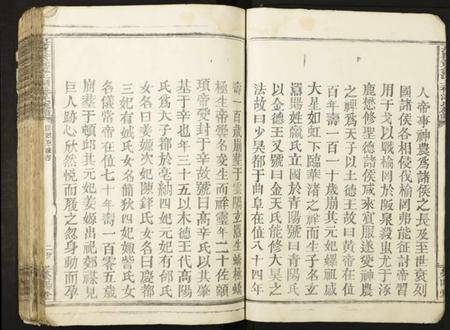 人帝事神農爲諸侯之長及至世衰列
國諸侯各相侵伐榆岡弗能征討帝習
用干戈以戰榆岡於阪泉殺蚩尤于涿
鹿懋修聖德諸侯咸來賓服遂受神農
之禪爲天子以土德王故曰黃帝在位
百年壽一百一十歲崩其元妃嫘祖感
大星如虹下臨華渚之祥而生子名玄
囂陽姓顓氏立國於青陽號曰青陽氏
以金德王又號曰金天氏能修大昊之
法故曰少昊都于曲阜在位八十四年
壽一百歲崩葬于雲陽玄囂生蟜極蟜
極生帝嚳名夋生而神靈年二十佐顓
頊帝受封于辛故號曰高辛氏以其肇
基于辛也年三十五以木德王代高陽
氏爲天子都於亳納四妃元妃有邰氏
女名曰姜嫄次妃陳鋒氏女名曰慶都
三妃有娀氏女名簡狄四妃娵訾氏女
名儀常帝在位七十年壽一百零五歲
崩葬于頓邱其元妃姜嫄出祀郊禖見
巨人跡心欣然悅而履之忽身動而孕